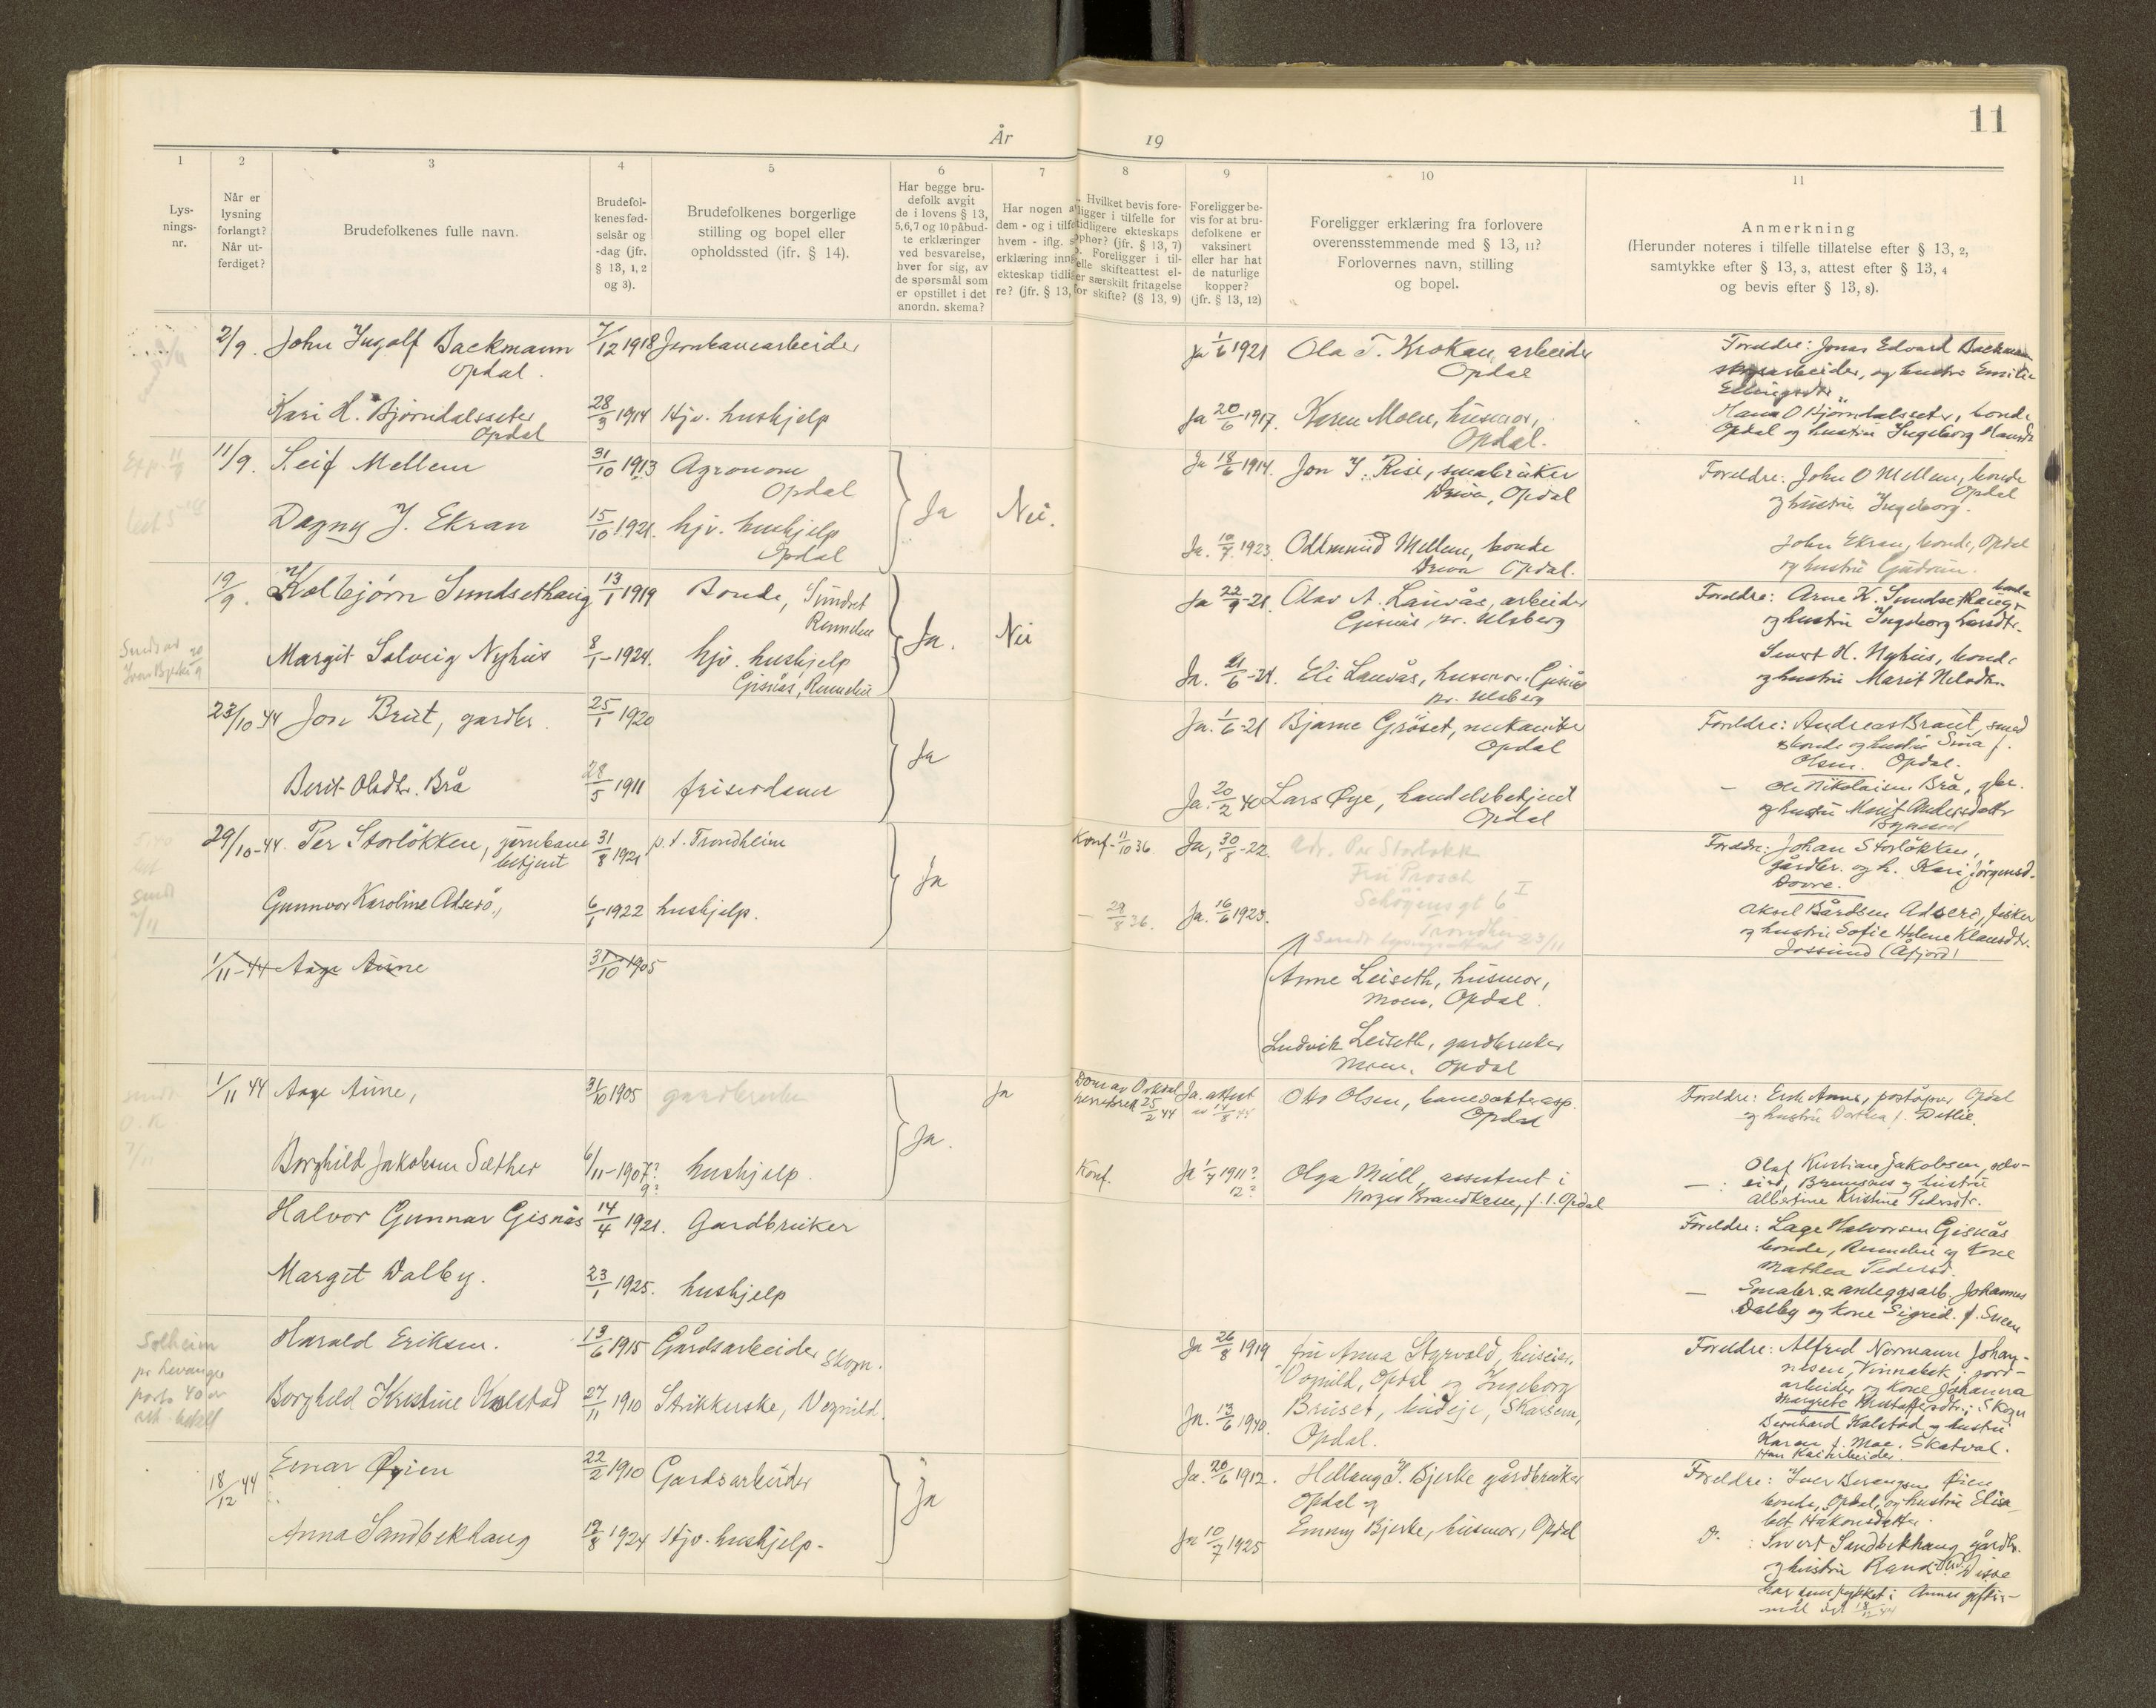 11
År 19
1 2 3 4 5 6 7 8 9 10 11
Lys-
nings-
nr.
Når er
lysning
forlangt?
Når ut-
ferdiget?
Brudefolkenes fulle navn.
Brudefol-
kenes fød-
selsår og
-dag (jfr.
§ 13, 1, 2
og 3).
Brudefolkenes borgerlige
stilling og bopel eller
opholdssted (jfr. § 14).
Har begge bru-
defolk avgit
de i lovens § 13,
5,6,7 og 10 påbud-
te erklæringer
ved besvarelse,
hver for sig, av
de spørsmål som
er opstillet i det
anordn. skema?
Har nogen a
dem - og i tilfe
hvem - iflg. s
erklæring inng
ekteskap tidlig
re? (jfr. § 13,
Hvilket bevis fore-
ligger i tilfelle for
tidligere ekteskaps
ophør? (jfr. § 13, 7)
Foreligger i til-
elle skifteattest el-
er særskilt fritagelse
for skifte? (§ 13, 9)
Foreligger be-
vis for at bru-
defolkene er
vaksinert
eller har hat
de naturlige
kopper?
(jfr. § 13, 12)
Foreligger erklæring fra forlovere
overensstemmende med § 13, 11?
Forlovernes navn, stilling
og bopel.
Anmerkning
(Herunder noteres i tilfelle tillatelse efter § 13, 2,
samtykke efter § 13, 3, attest efter § 13, 4
og bevis efter § 13, 8).
2/9. John Ingolf Backmann 7/12 1918 Jernbanearbeider Ja 1/6 1921 Ola T. Krokan, arbeider Foreldre: Jonas Edvard Backmann
Opdal. Opdal
og hustru Emilie
Kari H. Bjørndalsseter 28/3 1914 Hjv. hushjelp Ja 20/6 1917. Karen Moen, husmor, Hans O Bjørndalsseter, bonde
Opdal Opdal. Opdal og hustru Ingeborg Hansdt.
11/9. Leif Mellem 31/10 1913 Agronom Ja 18/6 1914. Jon J. Rise, småbruker Foreldre: John O Mellem, bonde
Opdal Driva, Opdal Opdal
og hustru Ingeborg.
Dagny J. Ekran 15/10 1921. hjv. hushjelp Ja Nei. Ja. 10/7. 1923. Oddmund Mellem, bonde John Ekran, bonde, Opdal
Opdal Driva Opdal. og hustru Gudrun.
19/9. Kolbjørn Sundsethaug 13/1 1919 Bonde, Sundset Ja 22/9-21. Olav A. Lauvås, arbeider Foreldre: Arne K. Sundsethaug, bonde
Rennebu Gisnås, pr. Ulsberg og hustru Ingeborg Larsdtr.
Margit Solveig Nyhus 8/1-1924. hjv. hushjelp Ja. Nei Ja. 21/6-21. Eli Lauvås, husmor, Gisnås Sivert H. Nyhus, bonde
Gisnås, Rennebu pr. Ulsberg og hustru Marit Nilsdtr.
23/10 44 Jon Brut, gardbr. 25/1 1920 Ja. 1/6-21 Bjarne Grøset, mekaniker Foreldre: Andreas Braut, smed
Opdal bonde og hustru Sina f.
Olsen. Opdal.
Berit Olsdtr. Brå 28/5 1911 frisørdame Ja Ja. 20/2 40 Lars Øye, handelsbetjent Ole Nikolaisen Brå, gbr.
Opdal og hustru Marit Andersdatter
29/10-44. Per Storløkken, jernbane 31/8 1921 p.t. Trondheim Konf. 11/10 36 Ja, 30/8-22. adr. Per Storløkk Foreldre: Johan Storløkken,
betjent gårdbr. og h. Kari Jørgensd.
Dovre.
Gunnvor Karoline Adserø, 6/1 1922 hushjelp. Ja 29/8 36. Ja. 16/6 1923. Aksel Bårdsen Adserø, fisker
og hustru Sofie Helene Klausdtr.
Jossund (Åfjord)
1/11-44 Aage Aune 31/10 1905
Anne Leiseth, husmor,
Moen, Opdal.
Ludvik Leiseth, gardbruker
Moen, Opdal
1/11 44 Aage Aune, 31/10 1905 gardbruker Ja Dom av Orkdal Ja. attest Otto Olsen, banevokterasp. Foreldre: Erik Aune, poståpner Opdal
herredsrett 25/2 44 Opdal og hustru Dorthea f. Detlie.
Borghild Jakobsen Sæther 6/11-1907? 9? hushjelp. Ja. Konf. Ja 1/7 1911? 12? Olga Mæll, assistent i Olaf Kristian Jakobsen,
Norges Brandkasse, f. t. Opdal og hustru
Albertine Kristine Pedersdtr.
Halvor Gunnar Gisnås 14/4 1921. Gardbruker Foreldre: Lage Halvorsen Gisnås
bonde, Rennebu og kone
Mathea Pedersd.
Margit Dalby. 23/1 1925. hushjelp Småbr. & anleggsarb. Johannes
Dalby og kone Sigrid f. Sveen
Solheim
pr Levanger
porto 40 ør
Harald Eriksen. 13/6 1915 Gårdsarbeider Skogn. Ja 26/8 1919 fru Anna Styrvold, Foreldre: Alfred Normann Johan-
Vognild, Opdal og Ingeborg nesen, Vinnabet, jord-
arbeider og kone Johanna
Borghild Kristine Kolstad 27/11 1910 Strikkerske, Vognild. Ja. 13/6 1940. Bruset, budeie, Skarsem, Margrete Kristoffersdtr., Skogn
Opdal. Bernhard Kolstad og hustru
Karen f. Moe. Skatval.
18/12 44 Einar Øien 22/2 1910 Gardsarbeider Ja. 20/6 1912. Hellaug J. Bjerke gårdbruker Foreldre: Iver Øien
Opdal og bonde, Opdal, og hustru Elisa-
bet Håkonsdatter.
Anna Sandbekhaug 19/8 1924 Hjv. hushjelp. ja Ja 10/7 1925 Emmy Bjerke, husmor, Opdal Sivert Sandbekhaug gårdbr.
og hustru
har samtykket i Annas gifter-
mål 18/12 44